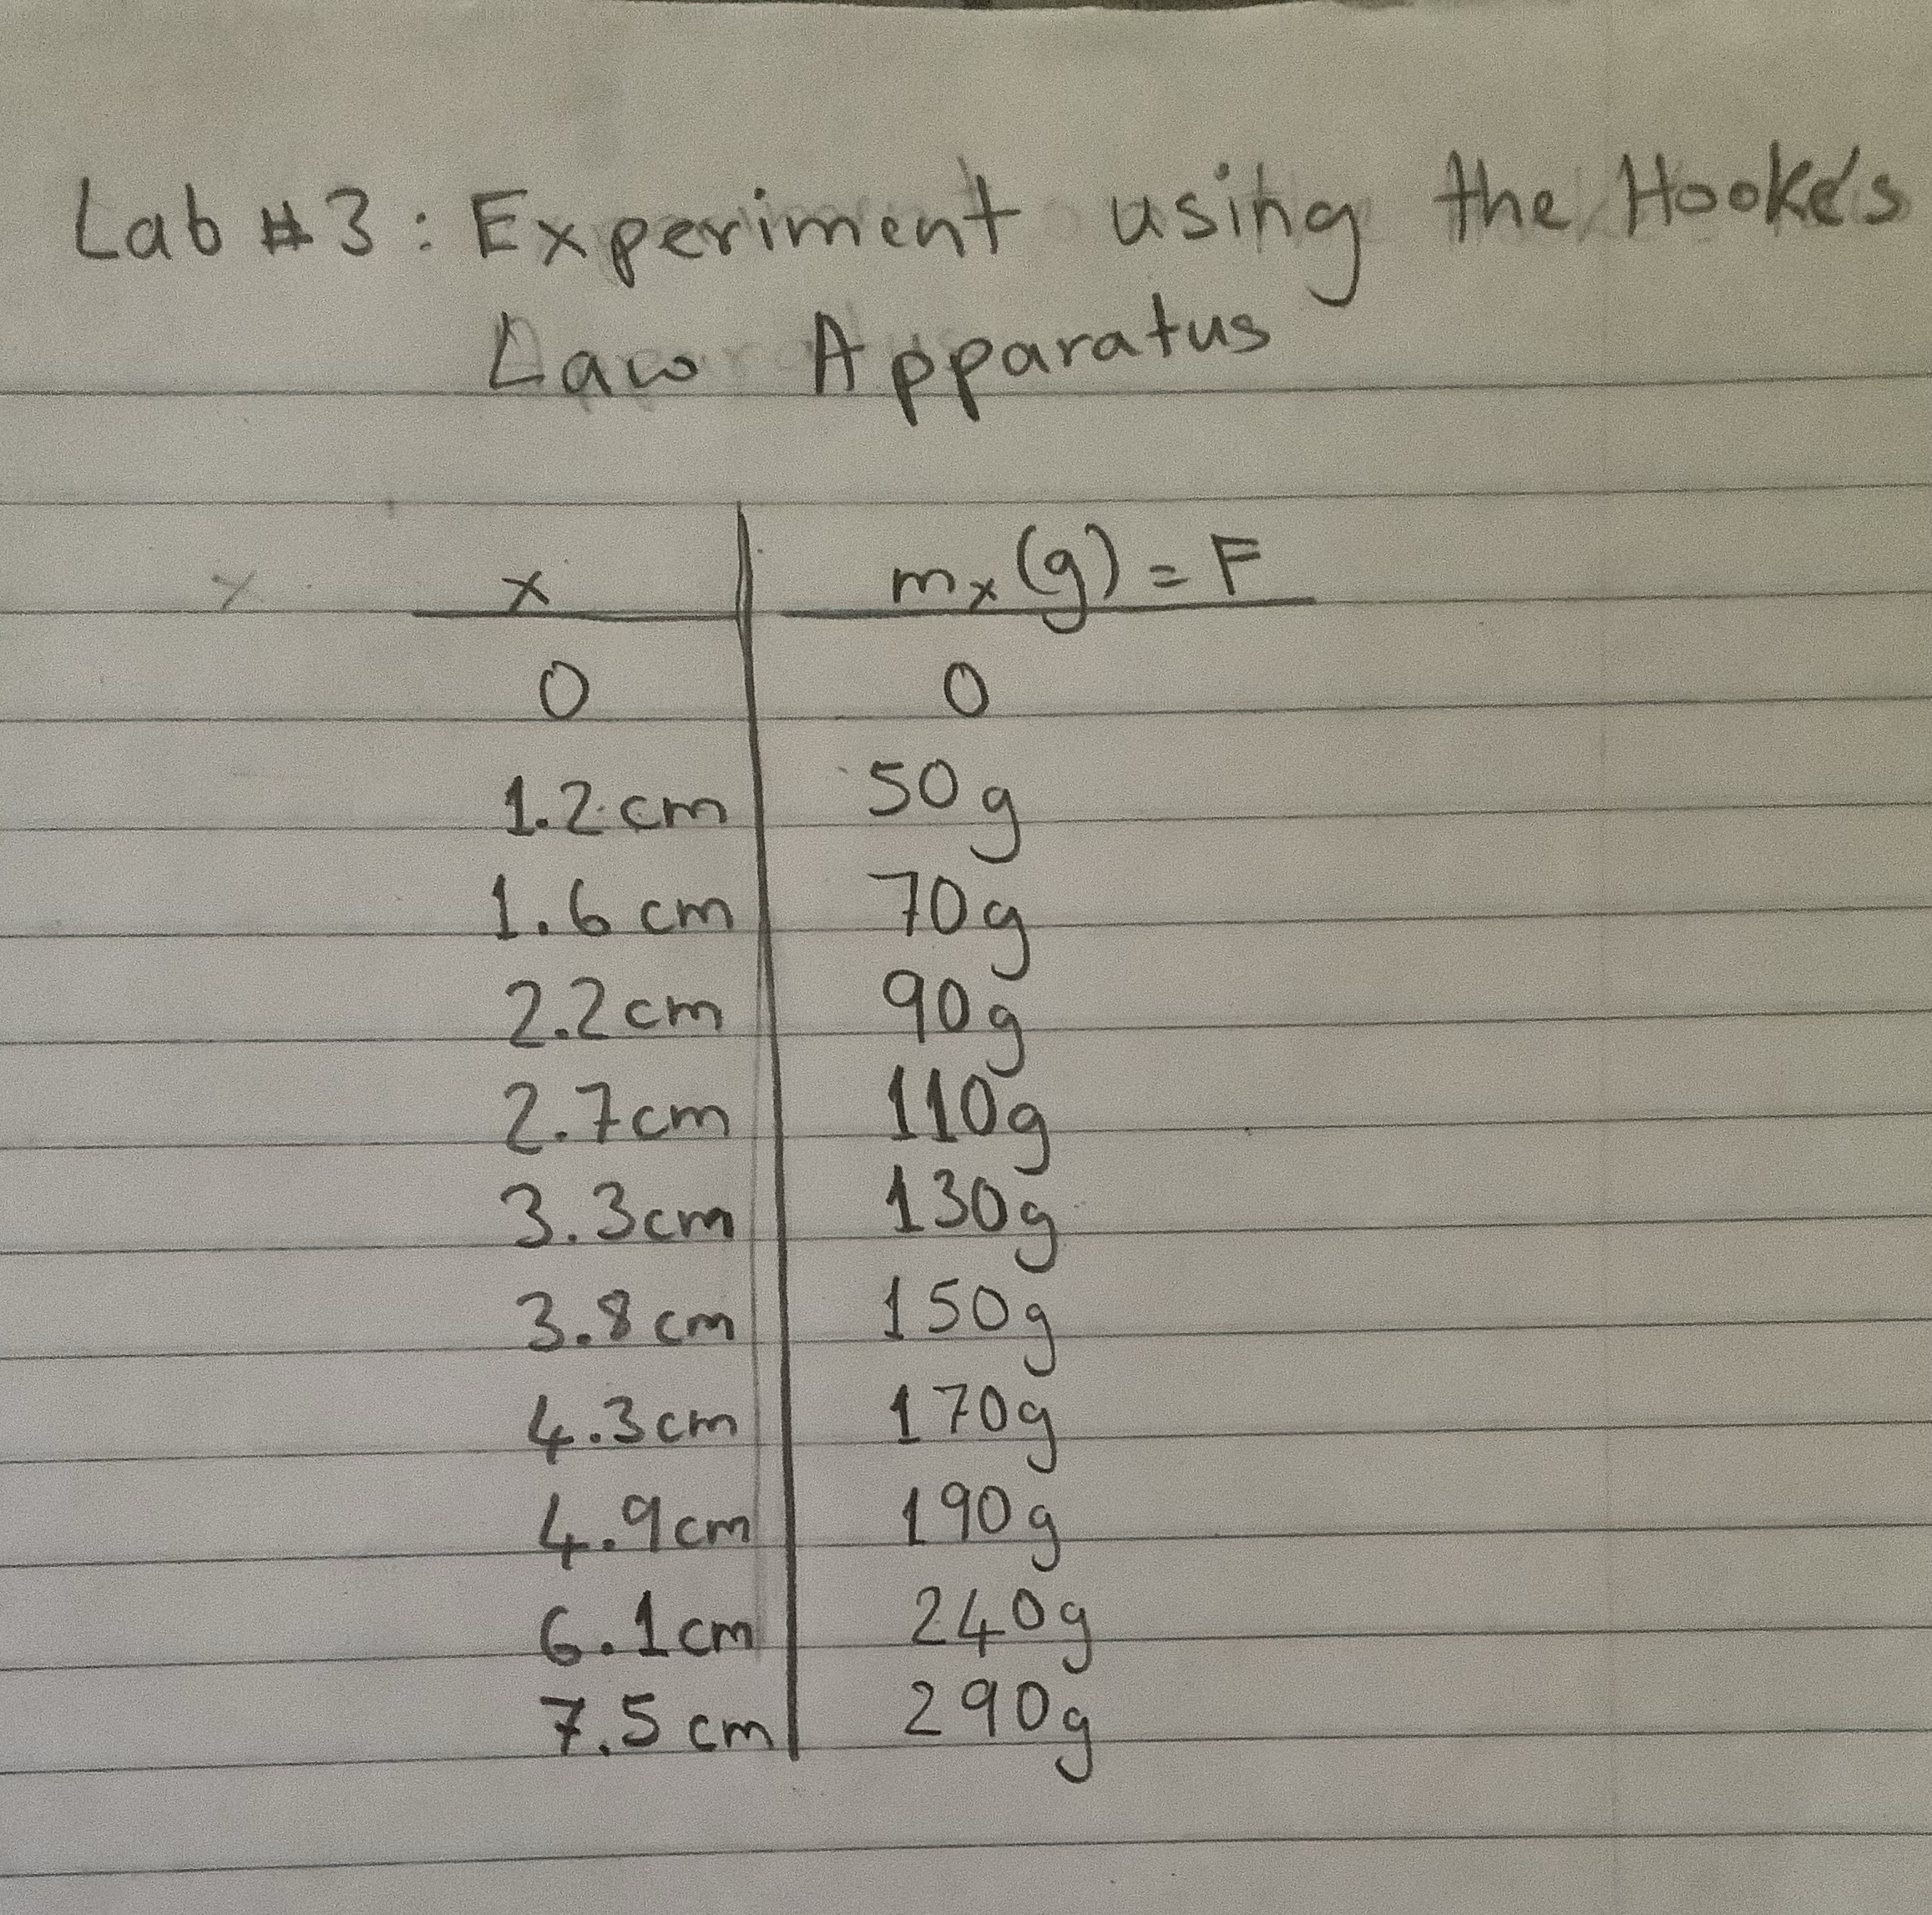 Lab #3: Experiment using the Hooke's
Law Apparatus
x mx(g) = F
0 0
1.2cm 50g
1.6cm 70g
2.2cm 90g
2.7cm 110g
3.3cm 130g
3.8cm 150g
4.3cm 170g
4.9cm 190g
6.1cm 240g
7.5cm 290g